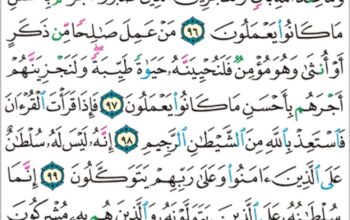 مَا كَانُوا۟ يَعْمَلُونَ ٩٦ مَنْ عَمِلَ صَـٰلِحًا مِّن ذَكَرٍ
أَوْ أُنثَىٰ وَهُوَ مُؤْمِنٌ فَلَنُحْيِيَنَّهُۥ حَيَوٰةً طَيِّبَةً ۖ وَلَنَجْزِيَنَّهُمْ
أَجْرَهُم بِأَحْسَنِ مَا كَانُوا۟ يَعْمَلُونَ ٩٧ فَإِذَا قَرَأْتَ ٱلْقُرْءَانَ
فَٱسْتَعِذْ بِٱللَّهِ مِنَ ٱلشَّيْطَـٰنِ ٱلرَّجِيمِ ٩٨ إِنَّهُۥ لَيْسَ لَهُۥ سُلْطَـٰنٌ
عَلَى ٱلَّذِينَ ءَامَنُوا۟ وَعَلَىٰ رَبِّهِمْ يَتَوَكَّلُونَ ٩٩ إِنَّمَا
سُلْطَـٰنُهُۥ عَلَى ٱلَّذِينَ يَتَوَلَّوْنَهُۥ وَٱلَّذِينَ هُم بِهِۦ مُشْرِكُونَ